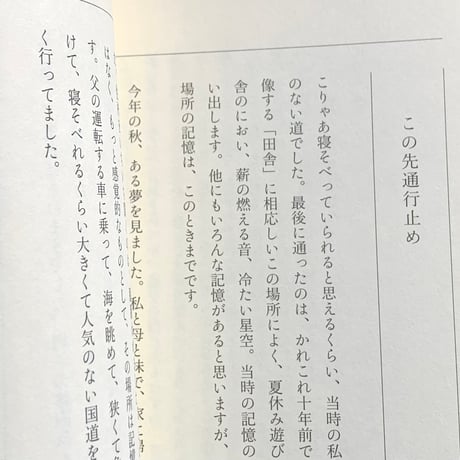 この先通行止め
こりゃあ寝そべっていられると思えるくらい、当時の私
のない道でした。最後に通ったのは、かれこれ十年前で
像する「田舎」に相応しいこの場所によく、夏休み遊び
舎のにおい、薪の燃える音、冷たい星空。当時の記憶の
い出します。他にもいろんな記憶があると思いますが、
場所の記憶は、このときまでです。
今年の秋、ある夢を見ました。私と母と妹で、家に
はなく、もっと感覚的なものとして、その場所は記憶
す。父の運転する車に乗って、海を眺めて、狭くて
けて、寝そべれるくらい大きくて人気のない国道を
く行ってました。